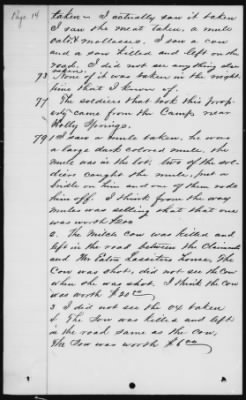 Page 14
taken. I actually saw it taken
I saw the meat taken, a mule
salt & mollasses. I saw a cow
and a sow killed and left on the
road. I did not see any thing else
taken.
73 None of it was taken in the night
time that I know of.
77 The soldiers that took this prop-
erty came from the Camps near
Holly Springs
79 1 I saw a mule taken, he was
a large dark colored mule, the
mule was in the lot, two of the sol-
diers caught the mule, put a
bridle on him and one of them rode
him off. I think from the way
mules was selling that that one
was worth
2. The Milch Cow was killed and
left in the road between the Claimants
and Mr Lassiters house, The
Cow was shot, did not see the Cow
when she was shot. I think the Cow
was worth $20
3 I did not see the ox taken
The Sow was killed and left
in the road same as the Cow,
The Sow was worth